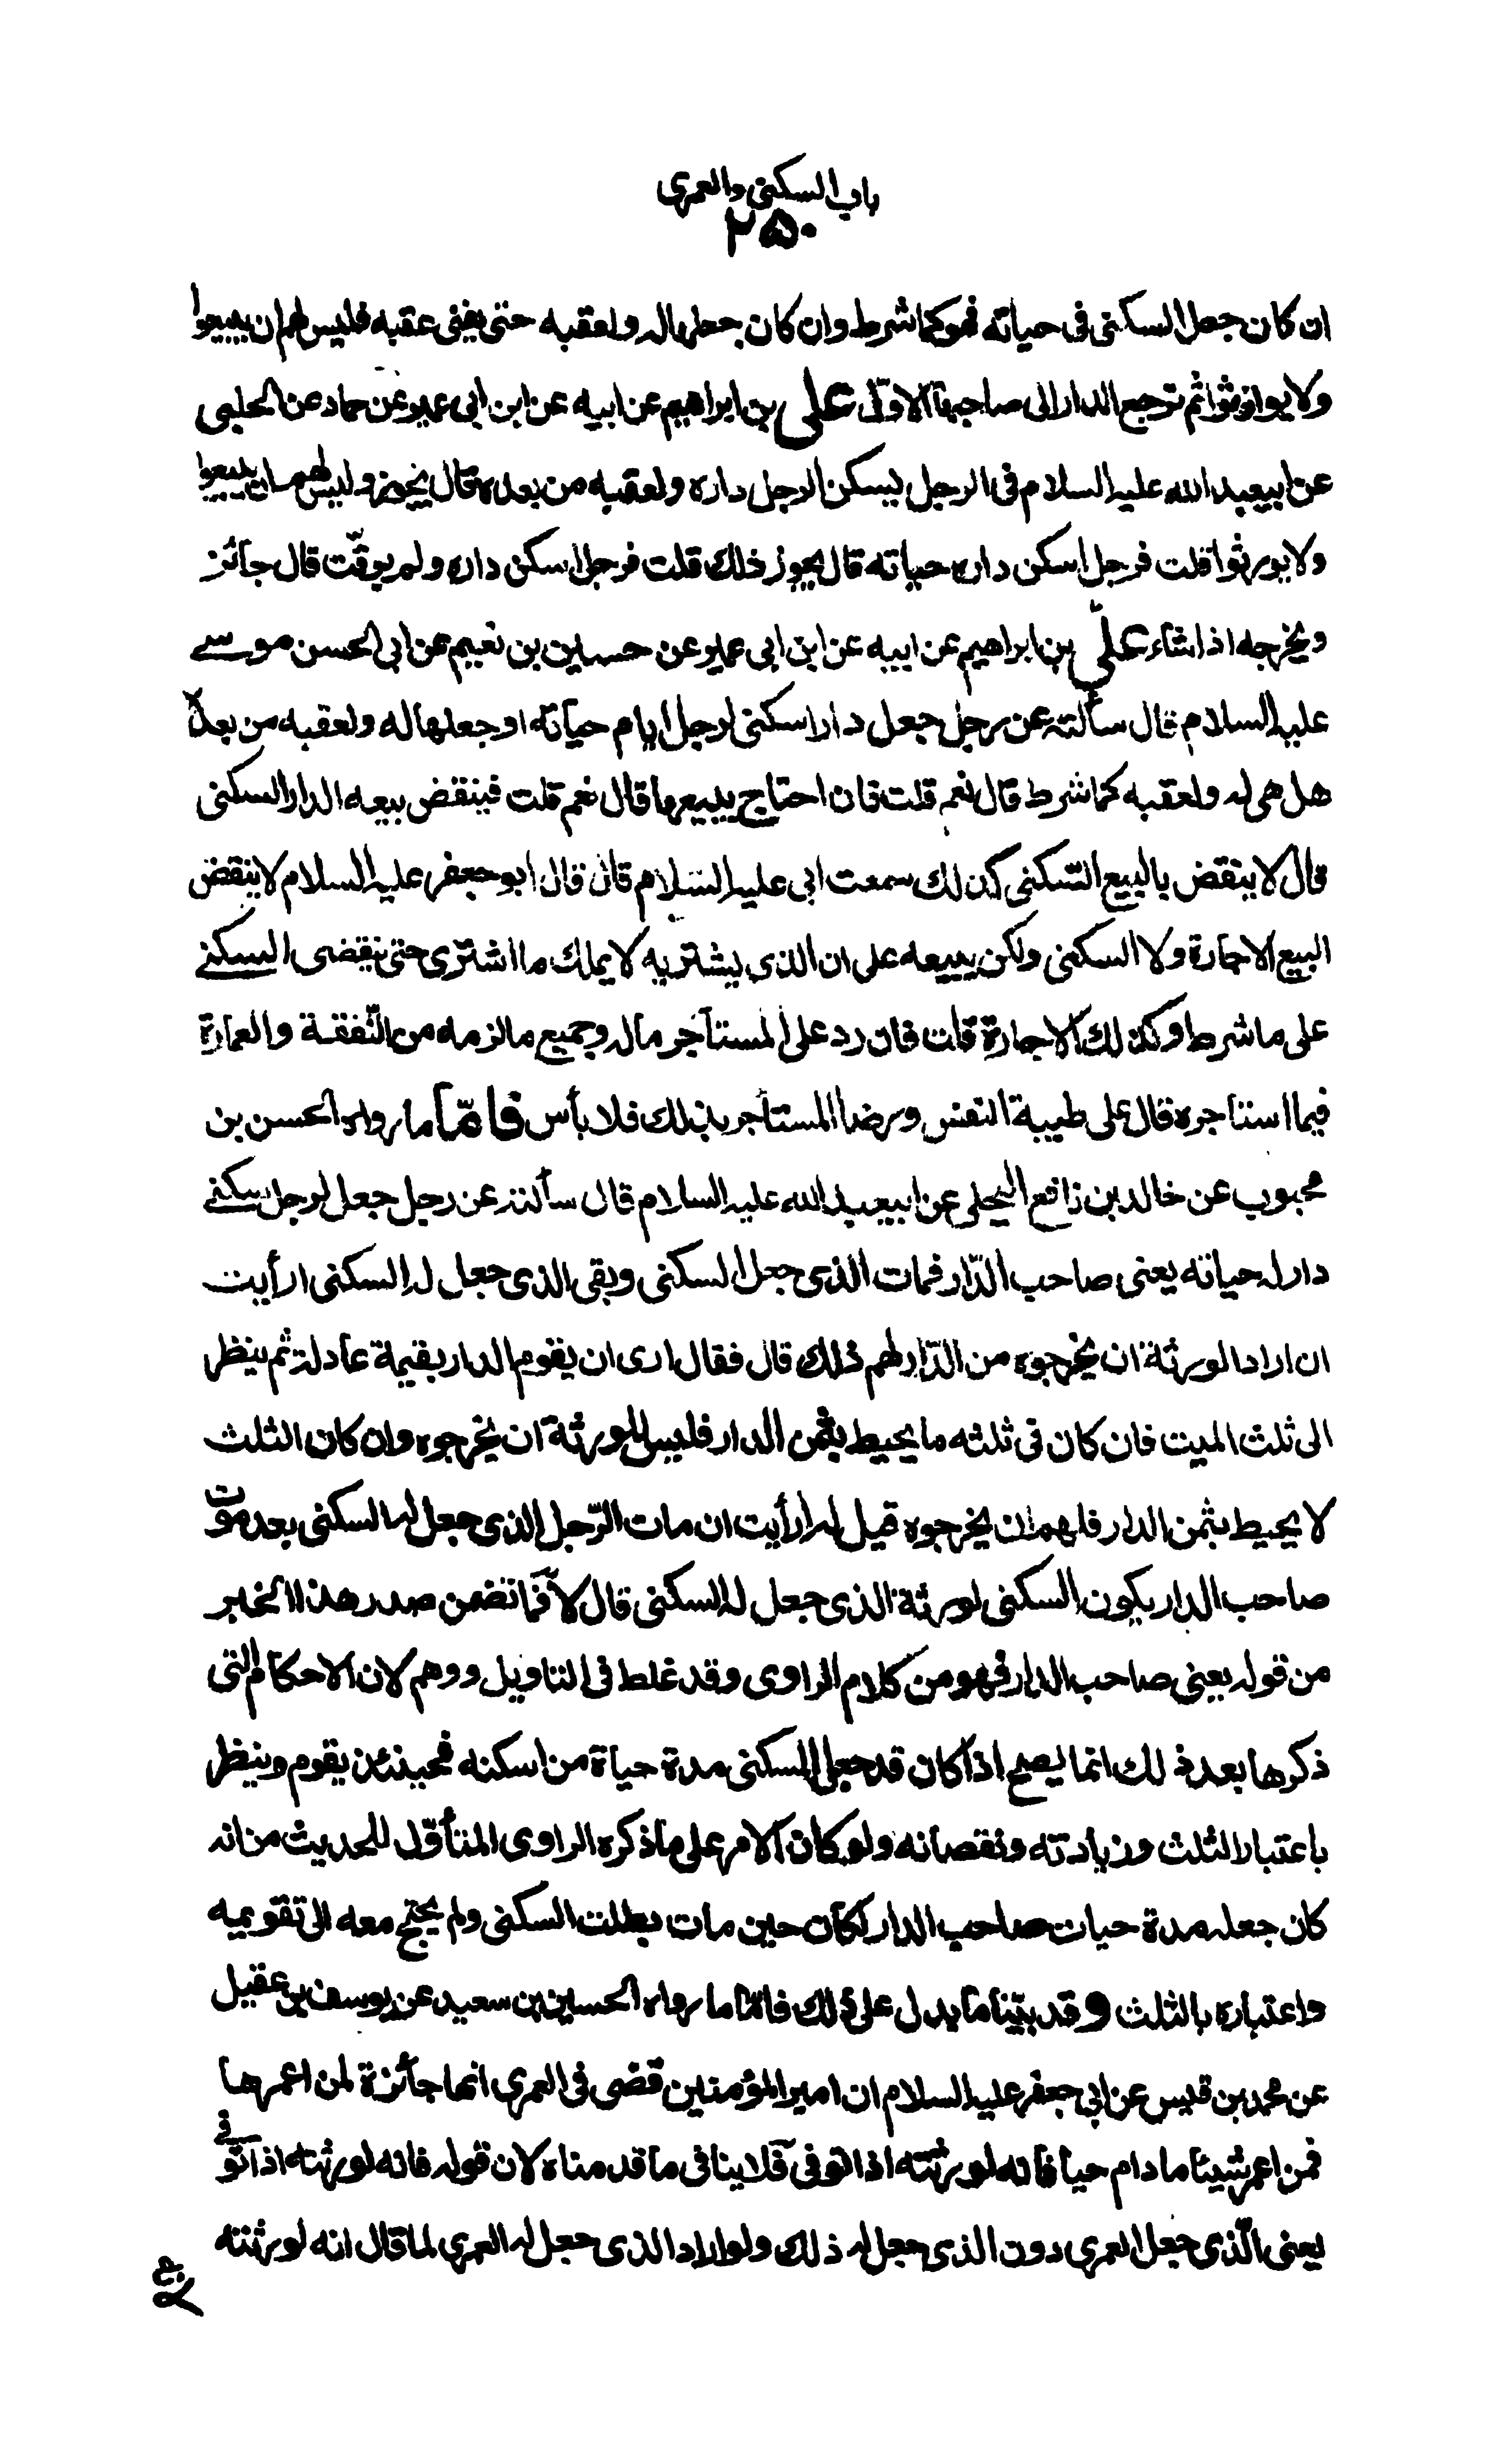 باب السكنى والعمرى
٢٥٠
ان كان جعل السكنى فى حياته فهو كما شرط وان كان جعلها له ولعقبه حتى يفنى عقبه فليس لهم ان يبيعوا
ولا يورثوا ثم ترجع الدار الى صاحبها الاوّل على بن ابراهيم عن ابيه عن ابن ابى عمير عن حماد عن الحلبى
عن ابيعبد الله عليه السلام فى الرجل يسكن الرجل داره ولعقبه من بعده قال يجوز وليس لهم ان يبيعوا
ولا يورثوا قلت فرجل اسكن داره حياته قال يجوز ذلك قلت فرجل اسكن داره ولم يوقّت قال جائز
ويخرجه اذا شاء علىّ بن ابراهيم عن ابيه عن ابن ابى عمير عن حسين بن نعيم عن ابى الحسن موسے
عليه السلام قال سألته عن رجل جعل دارا سكنى لرجل ايام حياته او جعلها له ولعقبه من بعده
هل هى له ولعقبه كما شرط قال نعم قلت فان احتاج يبيعها قال نعم قلت فينقض بيعه الدار السكنى
قال لا ينقض بالبيع السّكنى كذلك سمعت ابى عليه السّلام قال قال ابو جعفر عليه السلام لا ينقض
البيع الاجارة ولا السكنى ولكن يبيعه على ان الذى يشتريه لا يملك ما اشترى حتى ينقضى السكنے
على ما شرط وكذلك الاجارة قلت فان رد على المستاجر ماله وجميع ما لزمه من النّفقة والعمارة
فيما استاجره قال على طيبة النفس ورضا المستأجر بذلك فلا بأس فامّا ما رواه الحسن بن
محبوب عن خالد بن نافع البجلى عن ابيعبد الله عليه السلام قال سألته عن رجل جعل لرجل سكنے
دار له حياته يعنى صاحب الدّار فمات الذى جعل السكنى وبقى الذى جعل له السكنى ارأيت
ان اراد الورثة ان يخرجوه من الدّار لهم ذلك قال فقال ارى ان يقوم الدار بقيمة عادلة ثم ينظر
الى ثلث الميت فان كان فى ثلثه ما يحيط بثمن الدار فليس للورثة ان يخرجوه وان كان الثلث
لا يحيط بثمن الدار فلهم ان يخرجوه قيل له ارأيت ان مات الرّجل الذى جعل له السكنى بعد موت
صاحب الدار يكون السكنى لورثة الذى جعل له السكنى قال لا فما تضمن صدر هذا الخبر
من قوله يعنى صاحب الدار فهو من كلام الراوى وقد غلط فى التاويل ووهم لان الاحكام التى
ذكرها بعد ذلك انما يصح اذا كان قد جعل السكنى مدة حياة من اسكنه فحينئذ يقوم وينظر
باعتبار الثلث وزيادته ونقصانه ولو كان الامر على ما ذكره الراوى المتأوّل للحديث من انه
كان جعله مدة حيات صاحب الدار لكان حين مات بطلت السكنى ولم يحتج معه الى تقويمه
واعتباره بالثلث وقد بيّنا ما يدل على ذلك فامّا ما رواه الحسين بن سعيد عن يوسف بن عقيل
عن محمد بن قيس عن ابى جعفر عليه السلام ان امير المؤمنين قضى فى العمرى انها جائزة لمن اعمرها
فمن اعمر شيئا ما دام حيا فانه لورثته اذا توفى فلا ينافى ما قدمناه لان قوله فانه لورثته اذا توفى
يعنى الّذى جعل العمرى دون الذى جعل له ذلك ولو اراد الذى جعل له العمرى لما قال انه لورثته